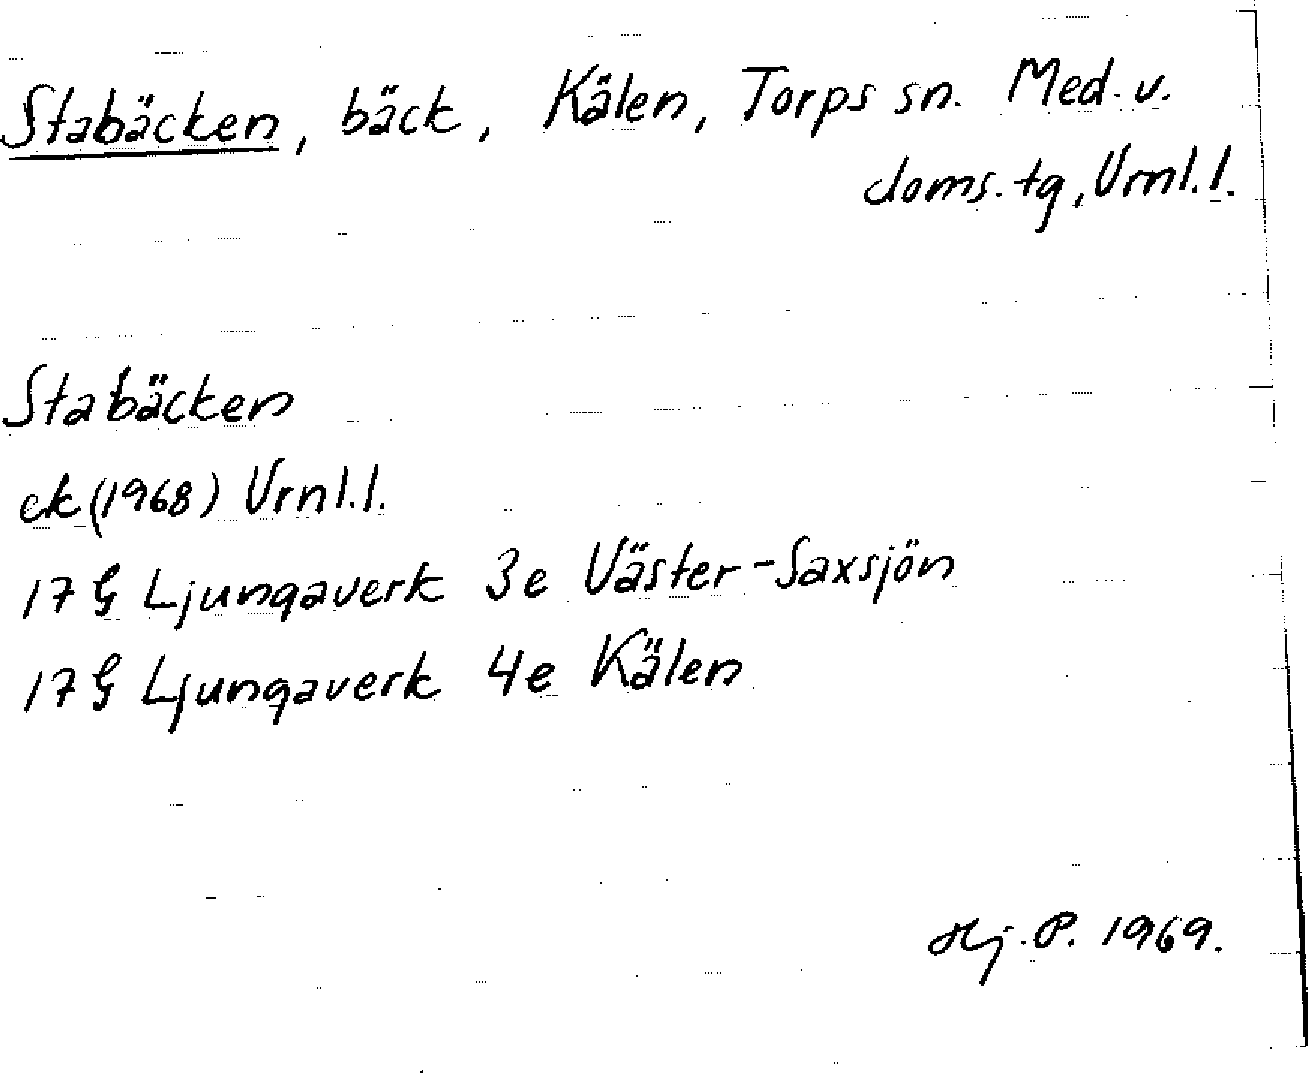 Stabäcken, bäck, Kälen, Torps sn. Med. v.
doms. tg, Vrnl. l.
Stabäcken
ek (1968) Vrnl. l.
17 G Ljungaverk 3e Väster-Saxsjön
17 G Ljungaverk 4e Kälen
Hj. P. 1969.